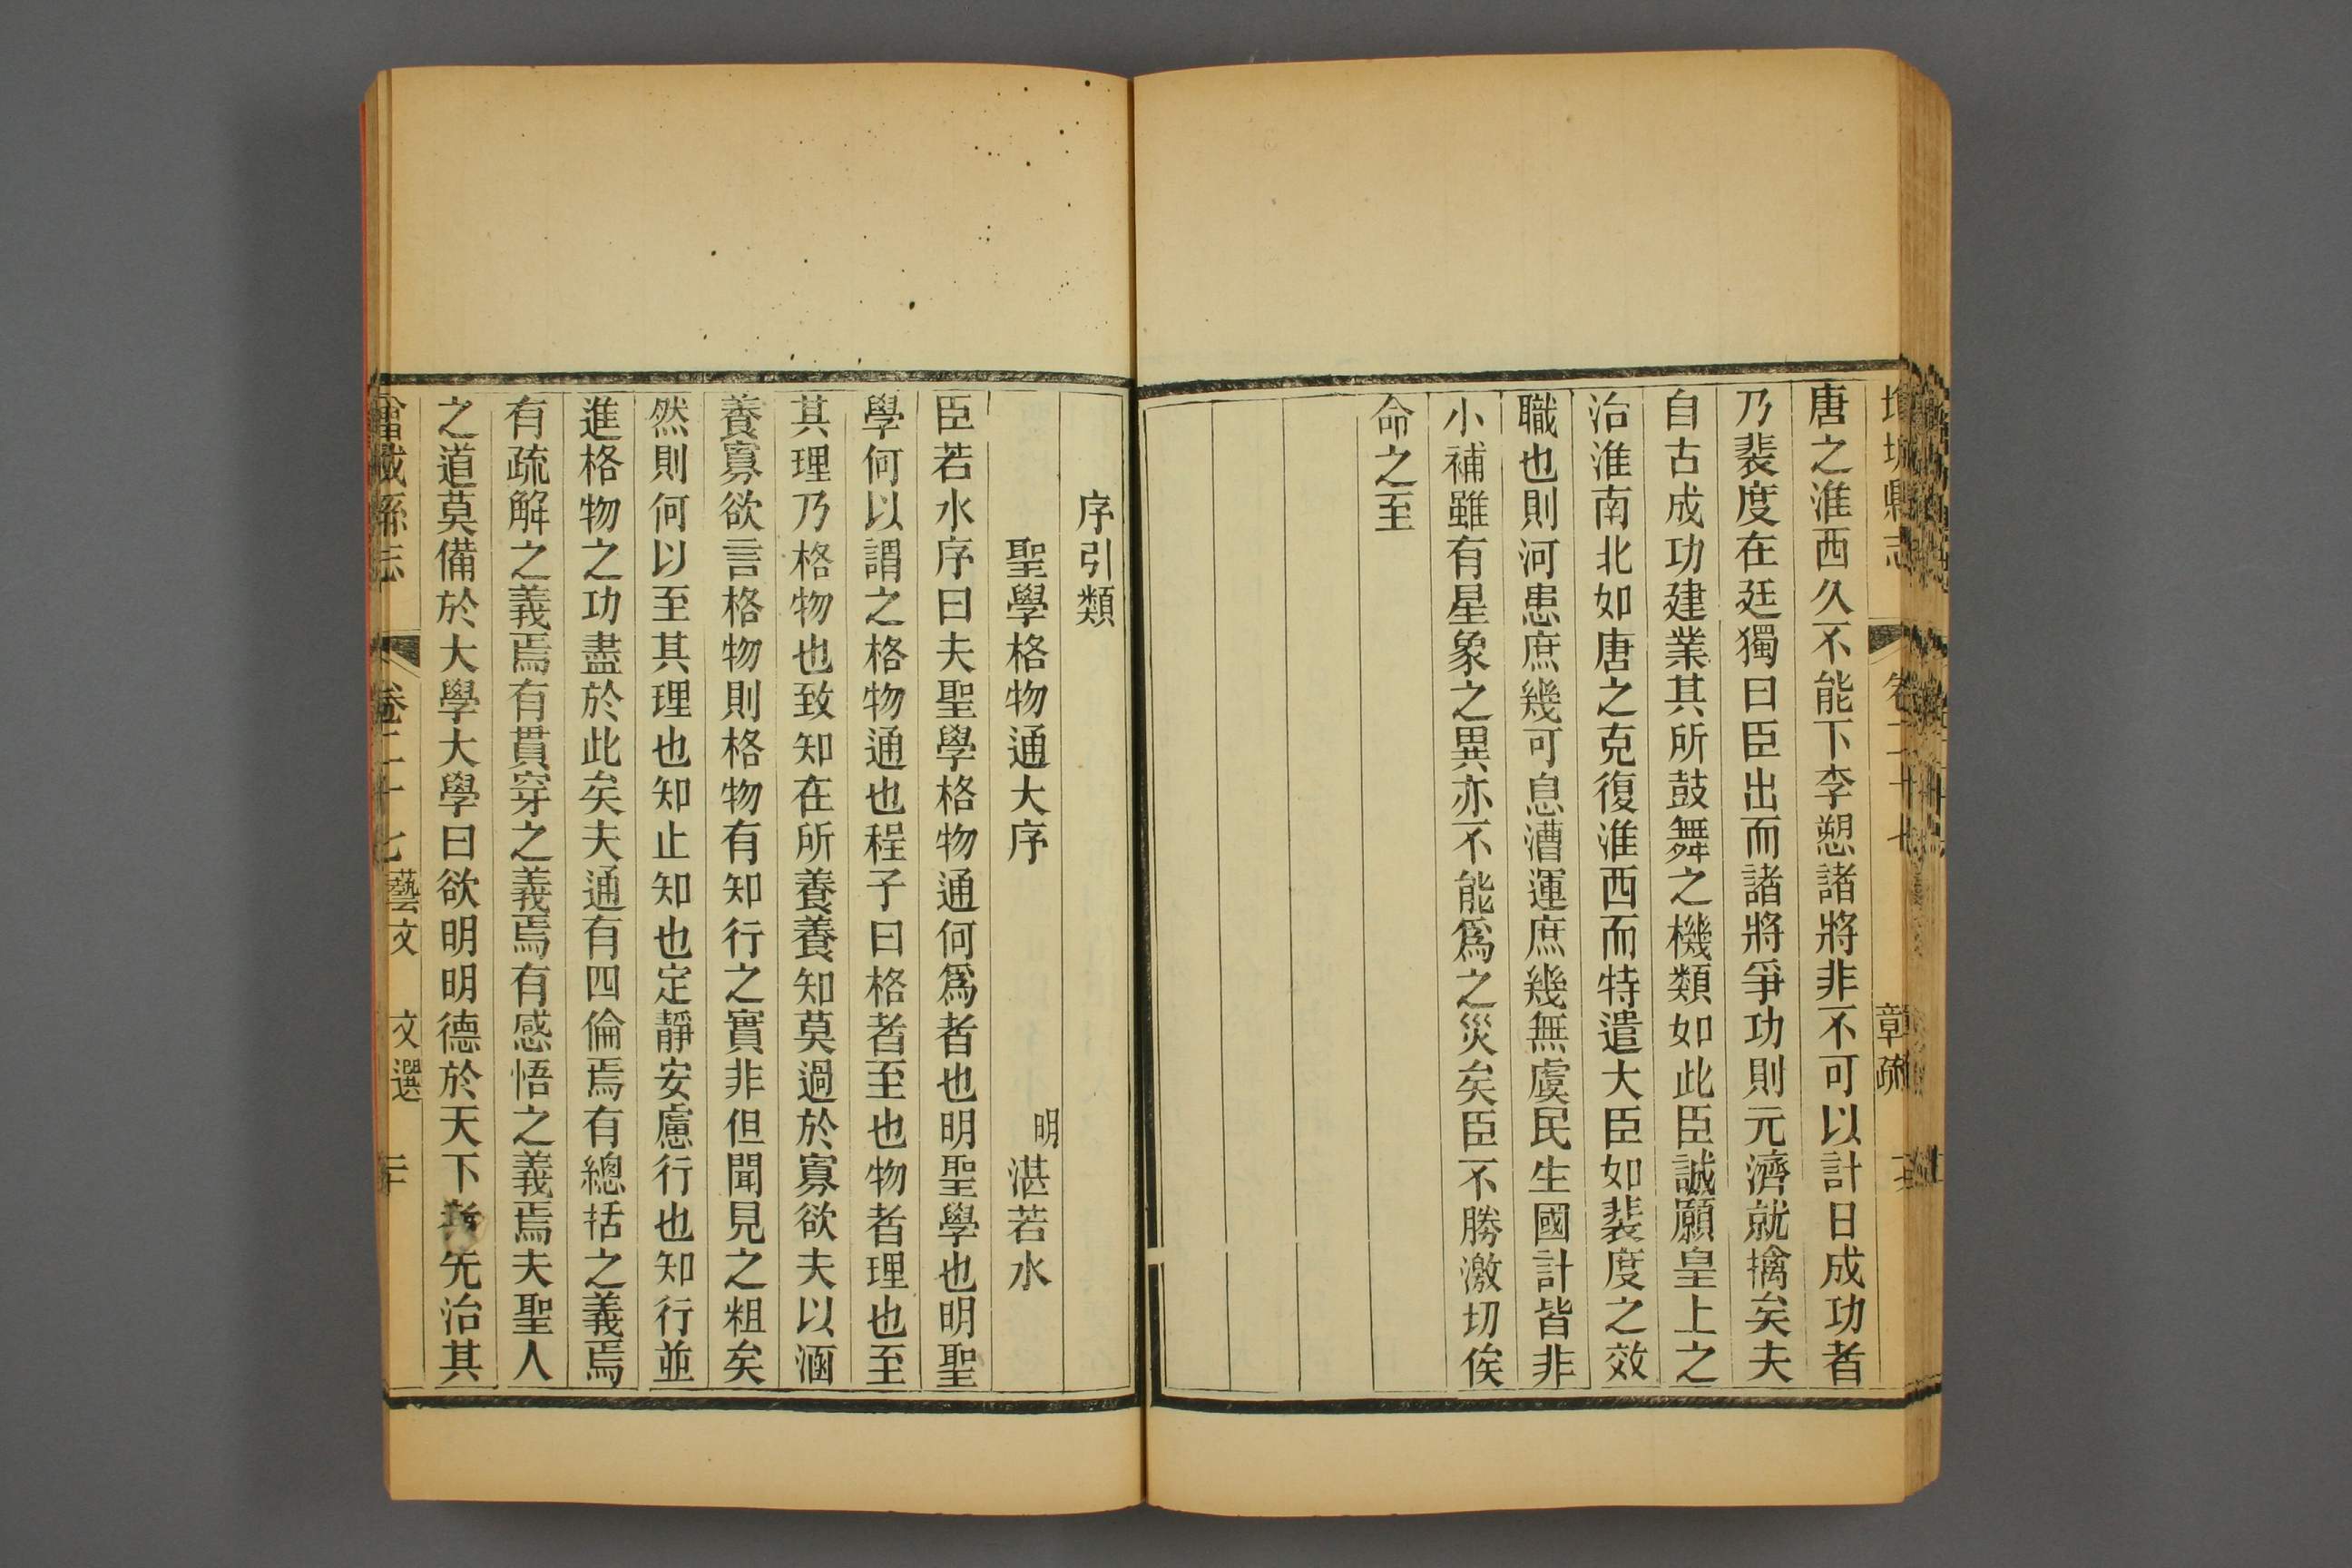 縣志
卷二十七
章疏
唐之淮西久不能下李愬諸將非不可以計日成功者
乃裴度在廷獨曰臣出而諸將爭功則元濟就擒矣夫
自古成功建業其所鼓舞之機類如此臣誠願皇上之
治淮南北如唐之克復淮西而特遣大臣如裴度之效
職也則河患庶幾可息漕運庶幾無虞民生國計皆非
小補雖有星象之異亦不能爲之災矣臣不勝激切俟
命之至
序引類
聖學格物通大序 明 湛若水
臣若水序曰夫聖學格物通何爲者也明聖學也明聖
學何以謂之格物通也程子曰格者至也物者理也至
其理乃格物也致知在所養養知莫過於寡欲夫以涵
養寡欲言格物則格物有知行之實非但聞見之粗矣
然則何以至其理也知止知也定靜安慮行也知行並
進格物之功盡於此矣夫通有四倫焉有總括之義焉
有疏解之義焉有貫穿之義焉有感悟之義焉夫聖人
之道莫備於大學大學曰欲明明德於天下者先治其
縣志
卷二十七
藝文 文選